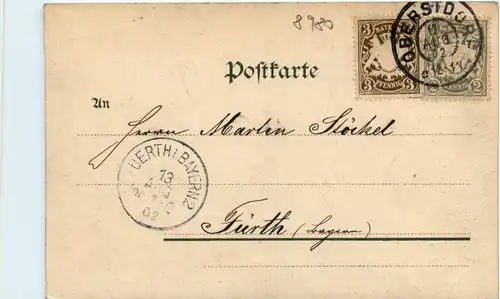 8980
3 PFENNIG 3
2
OBERSTDORF
Postkarte
An
Herrn Martin Stöckel
FUERTH i BAYERN 2
13
02
Fürth (Bayern)